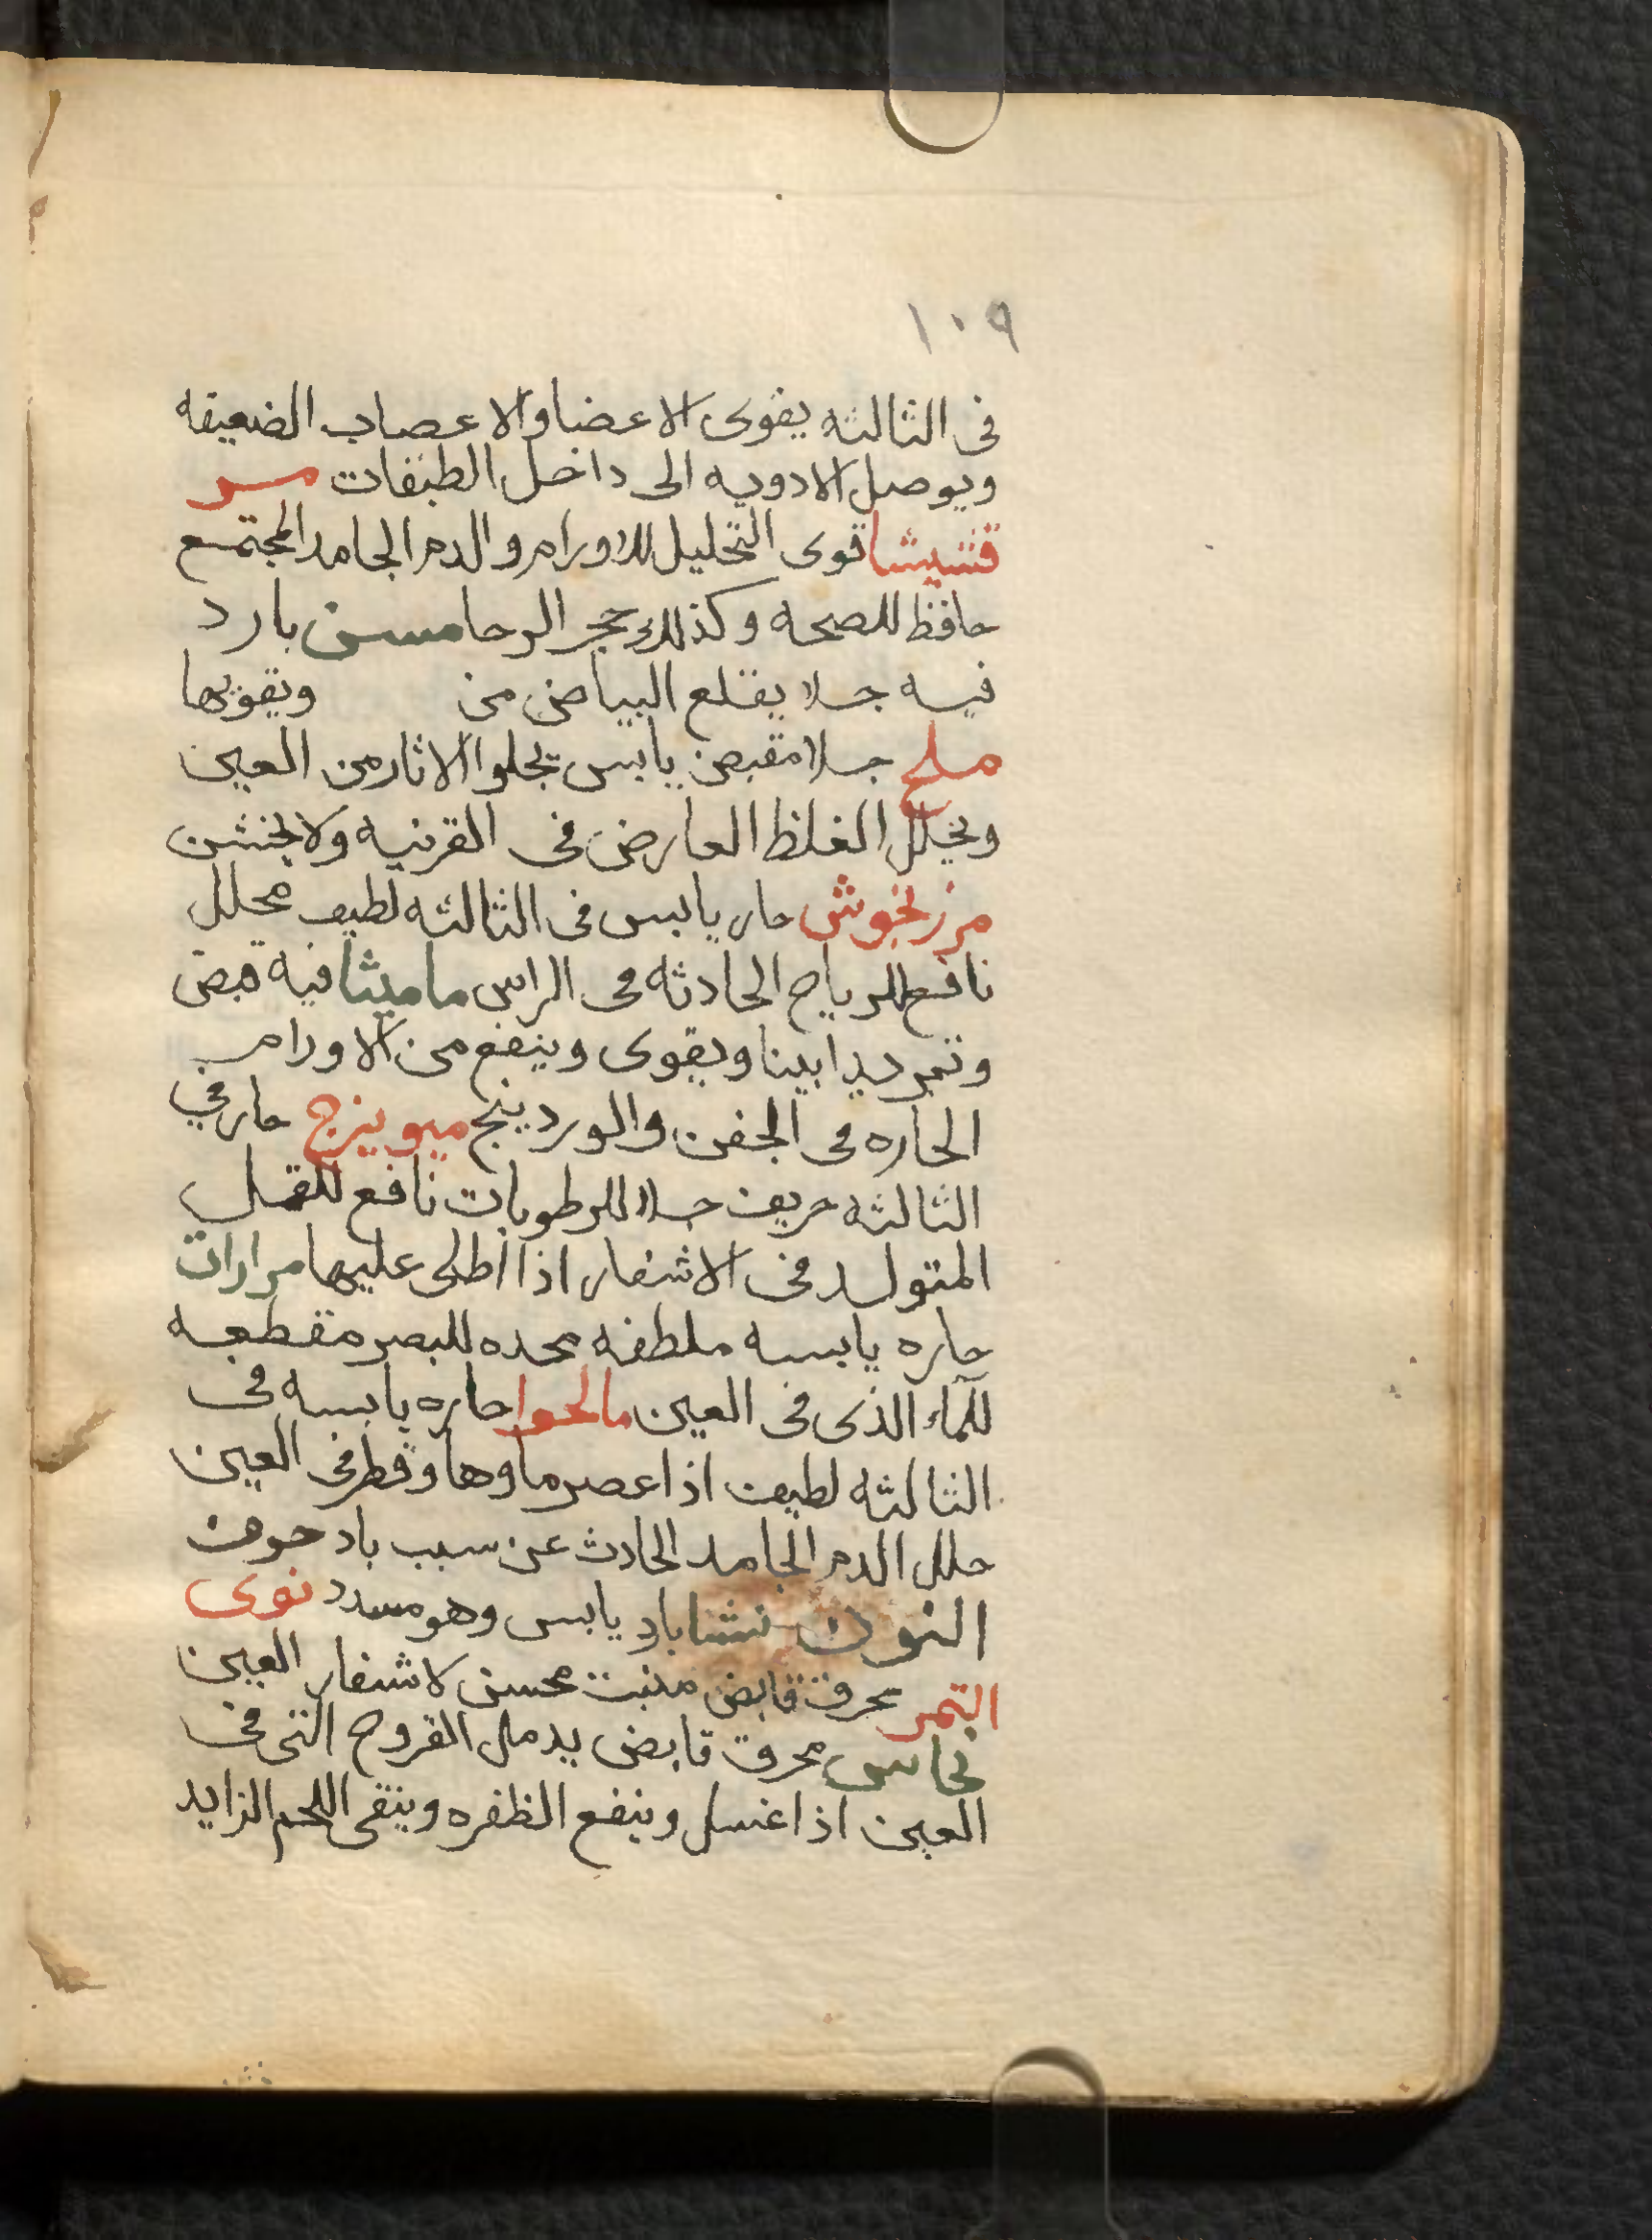 ١٠٩
فى الثالثه يقوى الاعضا والاعصاب الضعيفه
ويوصل الادويه الى داخل الطبقات مر
قشيشا قوى التحليل للاورام والدم الجامد المجتمع
حافظ للصحه وكذلك حجر الرحا مسن بارد
فيه جلا يقلع البياض من ويقويها
ملح جلا مقبض يابس يجلوا الاثار من العين
ويحلل الغلظ العارض فى القرنيه ولا
مرزنجوش حار يابس فى الثالثه لطيف محلل
نافع للرياح الحادثه فى الراس ماميثا فيه قبض
وتبريدا بينا ويقوى وينفع من الاورام
الحاره فى الجفن والوردينج ميويزج حار في
الثالثه حريف جلا للرطوبات نافع للقمل
المتولد فى الاشفار اذا اطلى عليها مرارات
حاره يابسه ملطفه محده للبصر مقطعه
للماء الذى فى العين مالحوا حاره يابسه فى
الثالثه لطيف اذا عصر ماوها وقطر فى العين
حلل الدم الجامد الحادث عن سبب باد حوف
النون نشا بارد يابس وهو مسدد نوى
التمر محرق قابض منبت محسن لاشفار العين
نحاس محرق قابض يدمل القروح التى فى
العين اذا غسل وينفع الظفره وينقى اللحم الزايد